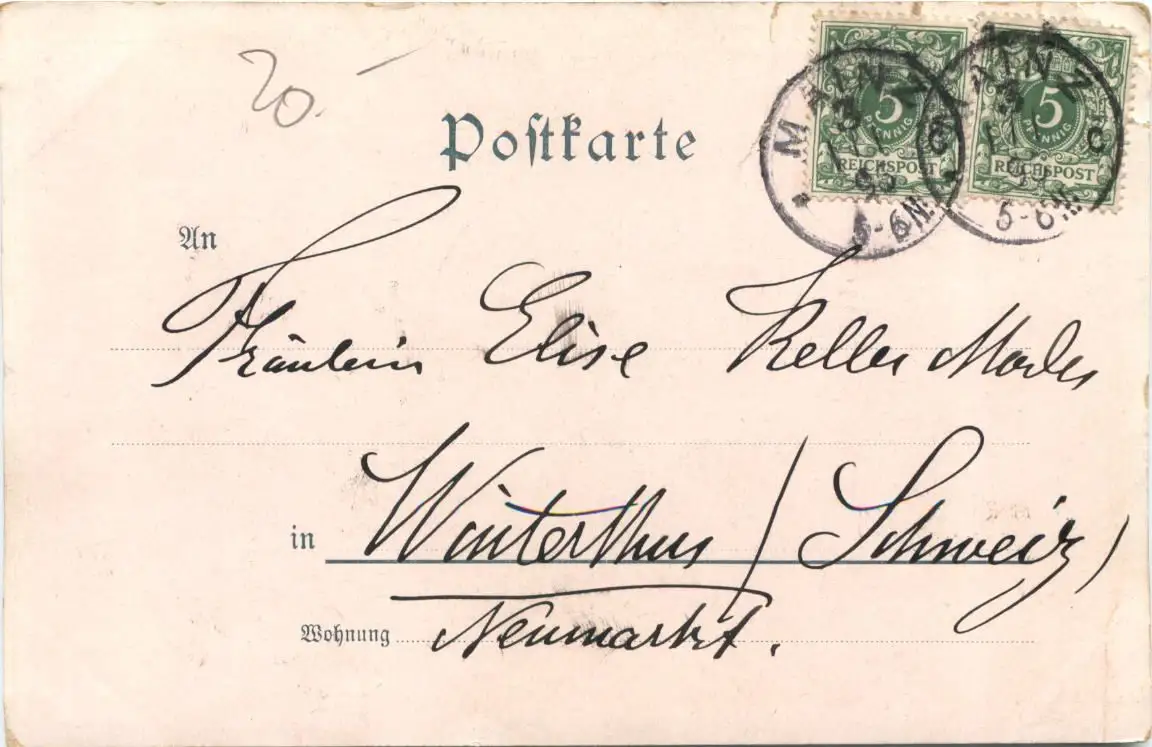 20.-
Postkarte
MAINZ
3
C
5-6N.
5
PFENNIG
REICHSPOST
MAINZ
3
C
5-6N.
5
PFENNIG
REICHSPOST
An
Fräulein Elise Keller
in Winterthur (Schweiz)
Wohnung Neumarkt.